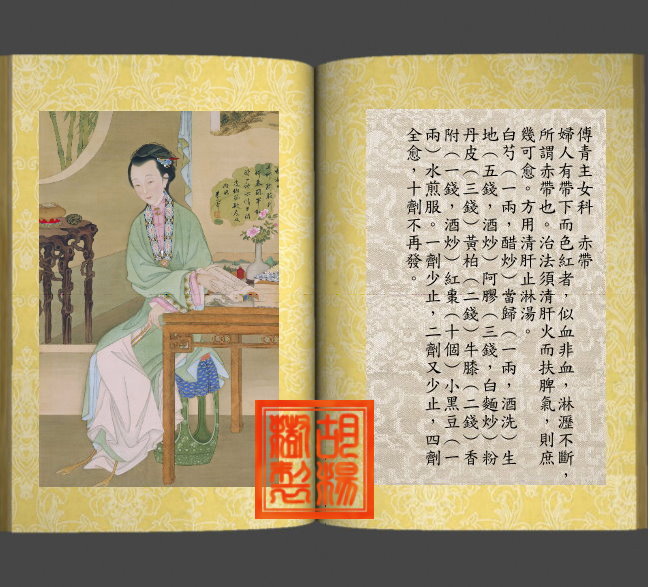 傅青主女科　赤帶
婦人有帶下而色紅者，似血非血，淋瀝不斷，
所謂赤帶也。治法須清肝火而扶脾氣，則庶
幾可愈。方用清肝止淋湯。
白芍（一兩，醋炒）當歸（一兩，酒洗）生
地（五錢，酒炒）阿膠（三錢，白麵炒）粉
丹皮（三錢）黃柏（二錢）牛膝（二錢）香
附（一錢，酒炒）紅棗（十個）小黑豆（一
兩）水煎服。一劑少止，二劑又少止，四劑
全愈，十劑不再發。
胡楊
製